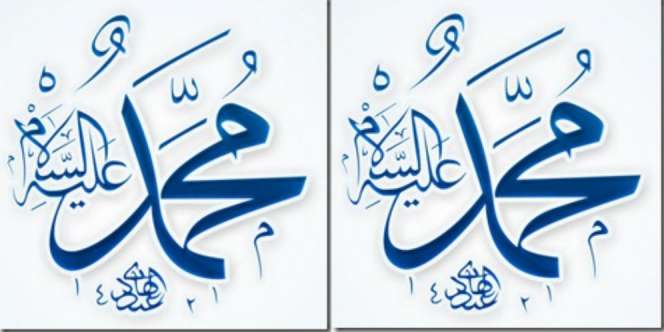 محمد عليه السلام
محمد عليه السلام